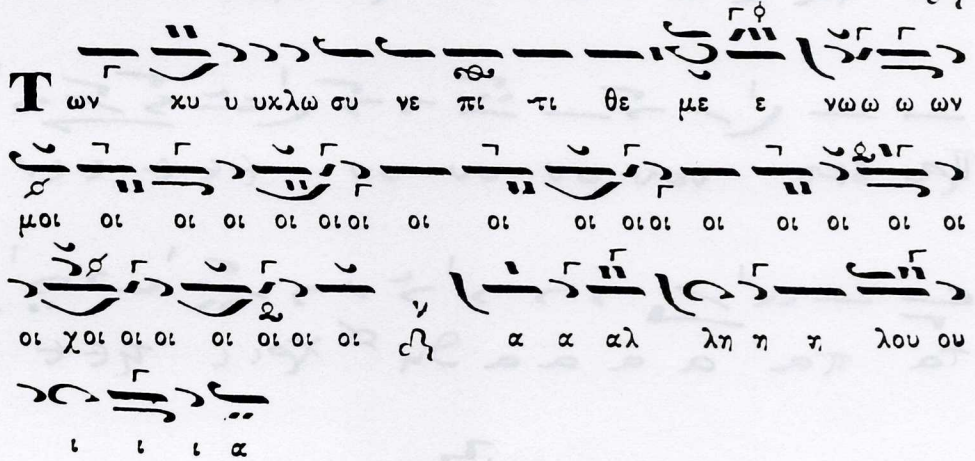 Των κυ υ υκλω συ νε πι τι θε με ε νωω ω ων
μοι οι οι οι οι οιοι οι οι οι οιοι οι οι οι οι οι
οι χοι οι οι οι οι οι οι α α αλ λη η η λου ου
ι ι ι α